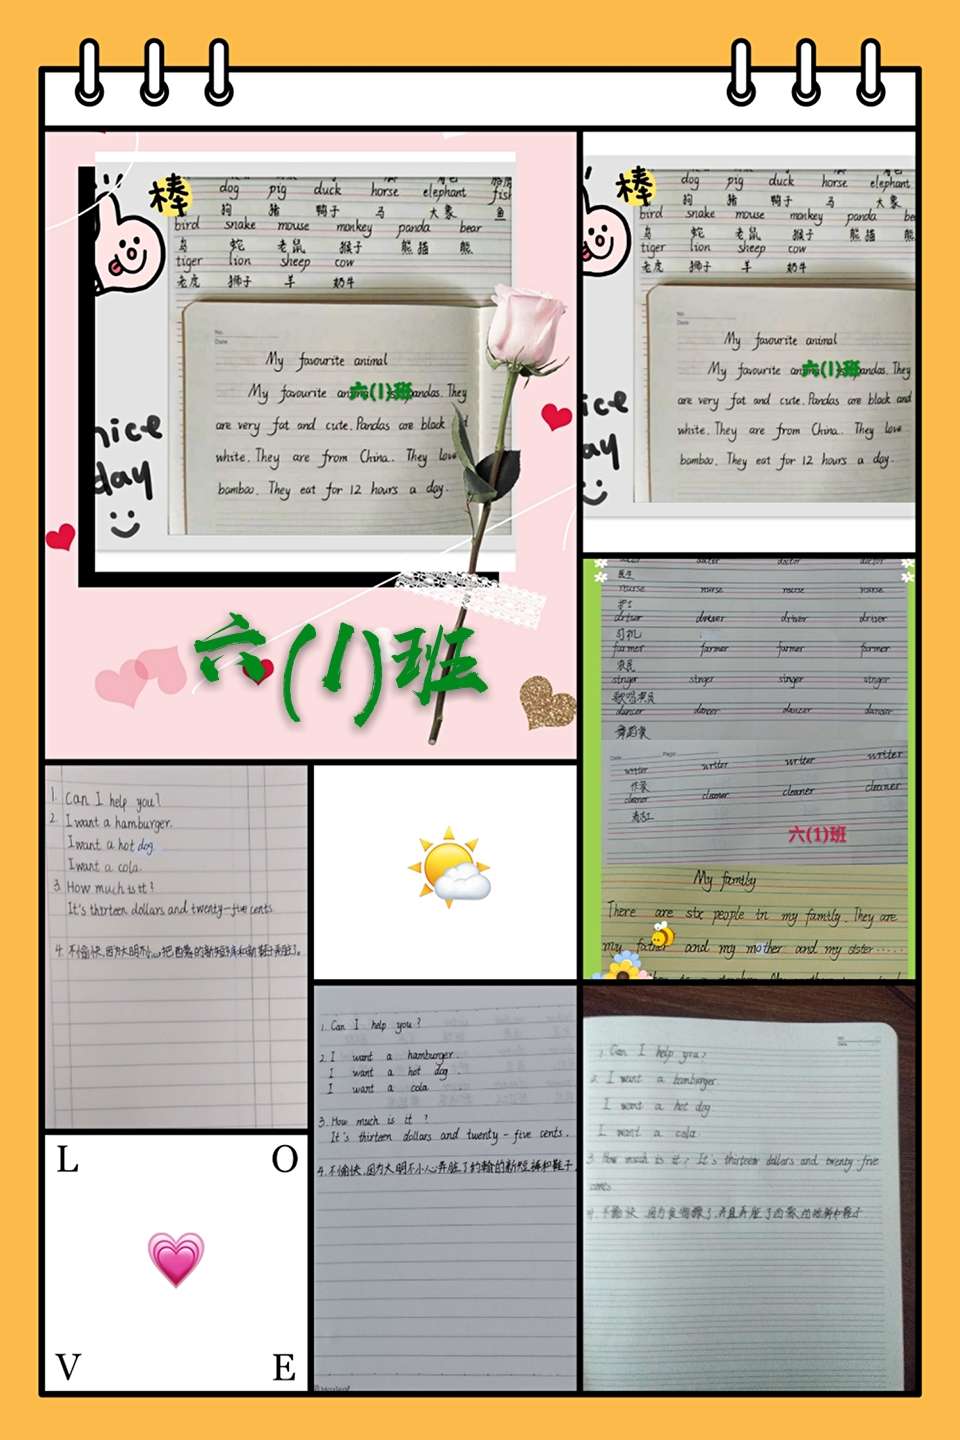 棒
dog pig duck horse elephant fish
狗 猪 鸭子 马 大象 鱼
bird snake mouse monkey panda bear
鸟 蛇 老鼠 猴子 熊猫 熊
tiger lion sheep cow
老虎 狮子 羊 奶牛
No.
Date
My favourite animal
My favourite 六(1)班 pandas. They
are very fat and cute. Pandas are black
white. They are from China. They love
bamboo. They eat for 12 hours a day.
nice
day
六(1)班
棒
dog pig duck horse elephant
狗 猪 鸭子 马 大象
bird snake mouse monkey panda
鸟 蛇 老鼠 猴子 熊猫 熊
tiger lion sheep cow
老虎 狮子 羊 奶牛
My favourite animal
My favourite 六(1)班 pandas. They
are very fat and cute. Pandas are black and
white. They are from China. They love
bamboo. They eat for 12 hours a day.
doctor doctor doctor
医生
nurse nurse nurse nurse
护士
driver driver driver driver
司机
farmer farmer farmer farmer
农民
singer singer singer singer
歌唱演员
dancer dancer dancer dancer
舞蹈家
writer writer writer writer
作家
cleaner cleaner cleaner cleaner
清洁工
六(1)班
My family
There are six people in my family. They are
my father and my mother and my sister......
1. Can I help you?
2. I want a hamburger.
I want a hot dog.
I want a cola.
3. How much is it?
It's thirteen dollars and twenty-five cents
4. 不愉快,因为大明不小心把西蒙的新短裤和新鞋子弄脏了。
1. Can I help you?
2. I want a hamburger.
I want a hot dog.
I want a cola.
3. How much is it?
It's thirteen dollars and twenty-five cents.
4. 不愉快,因为大明不小心弄脏了约翰的新短裤和鞋子
1. Can I help you?
2. I want a hamburger
I want a hot dog
I want a cola
3. How much is it? It's thirteen dollars and twenty-five
cents
4. 不愉快
L O
V E